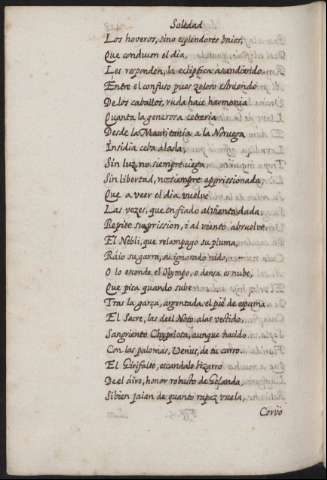 Soledad
Los overos, sino esplendores bayos,
Que conducen el dia,
Les responden, la ecliptica ascendiendo.
Entre el confuso pues zeloso estruendo
De los caballos, ruda hace harmonia
Quanta la generosa cetreria
Desde la Mauritania a la Noruega
Insidia ceba alada,
Sin luz, no siempre ciega
Sin libertad, no siempre apprissionada,
Que a veer el dia vuelve
Las vezes, que en fiado al viento dada,
Repite su prission, i al viento absuelve.
El Nebli, que relampago su pluma,
Raio su garra, su ignorado nido,
O lo esconde el Olympo, o densa es nube,
Que pica quando sube
Tras la garça, argentada el pie de espuma
El Sacre, las del Noto alas vestido,
Sangriento Chypriota, aunque nacido
Con las palomas, Venus, de tu carro.
El Girifalte, escandalo bizarro
Del aire, honor robusto de Gelanda,
Si bien jaian de quanto rapaz vuela,
Corvo